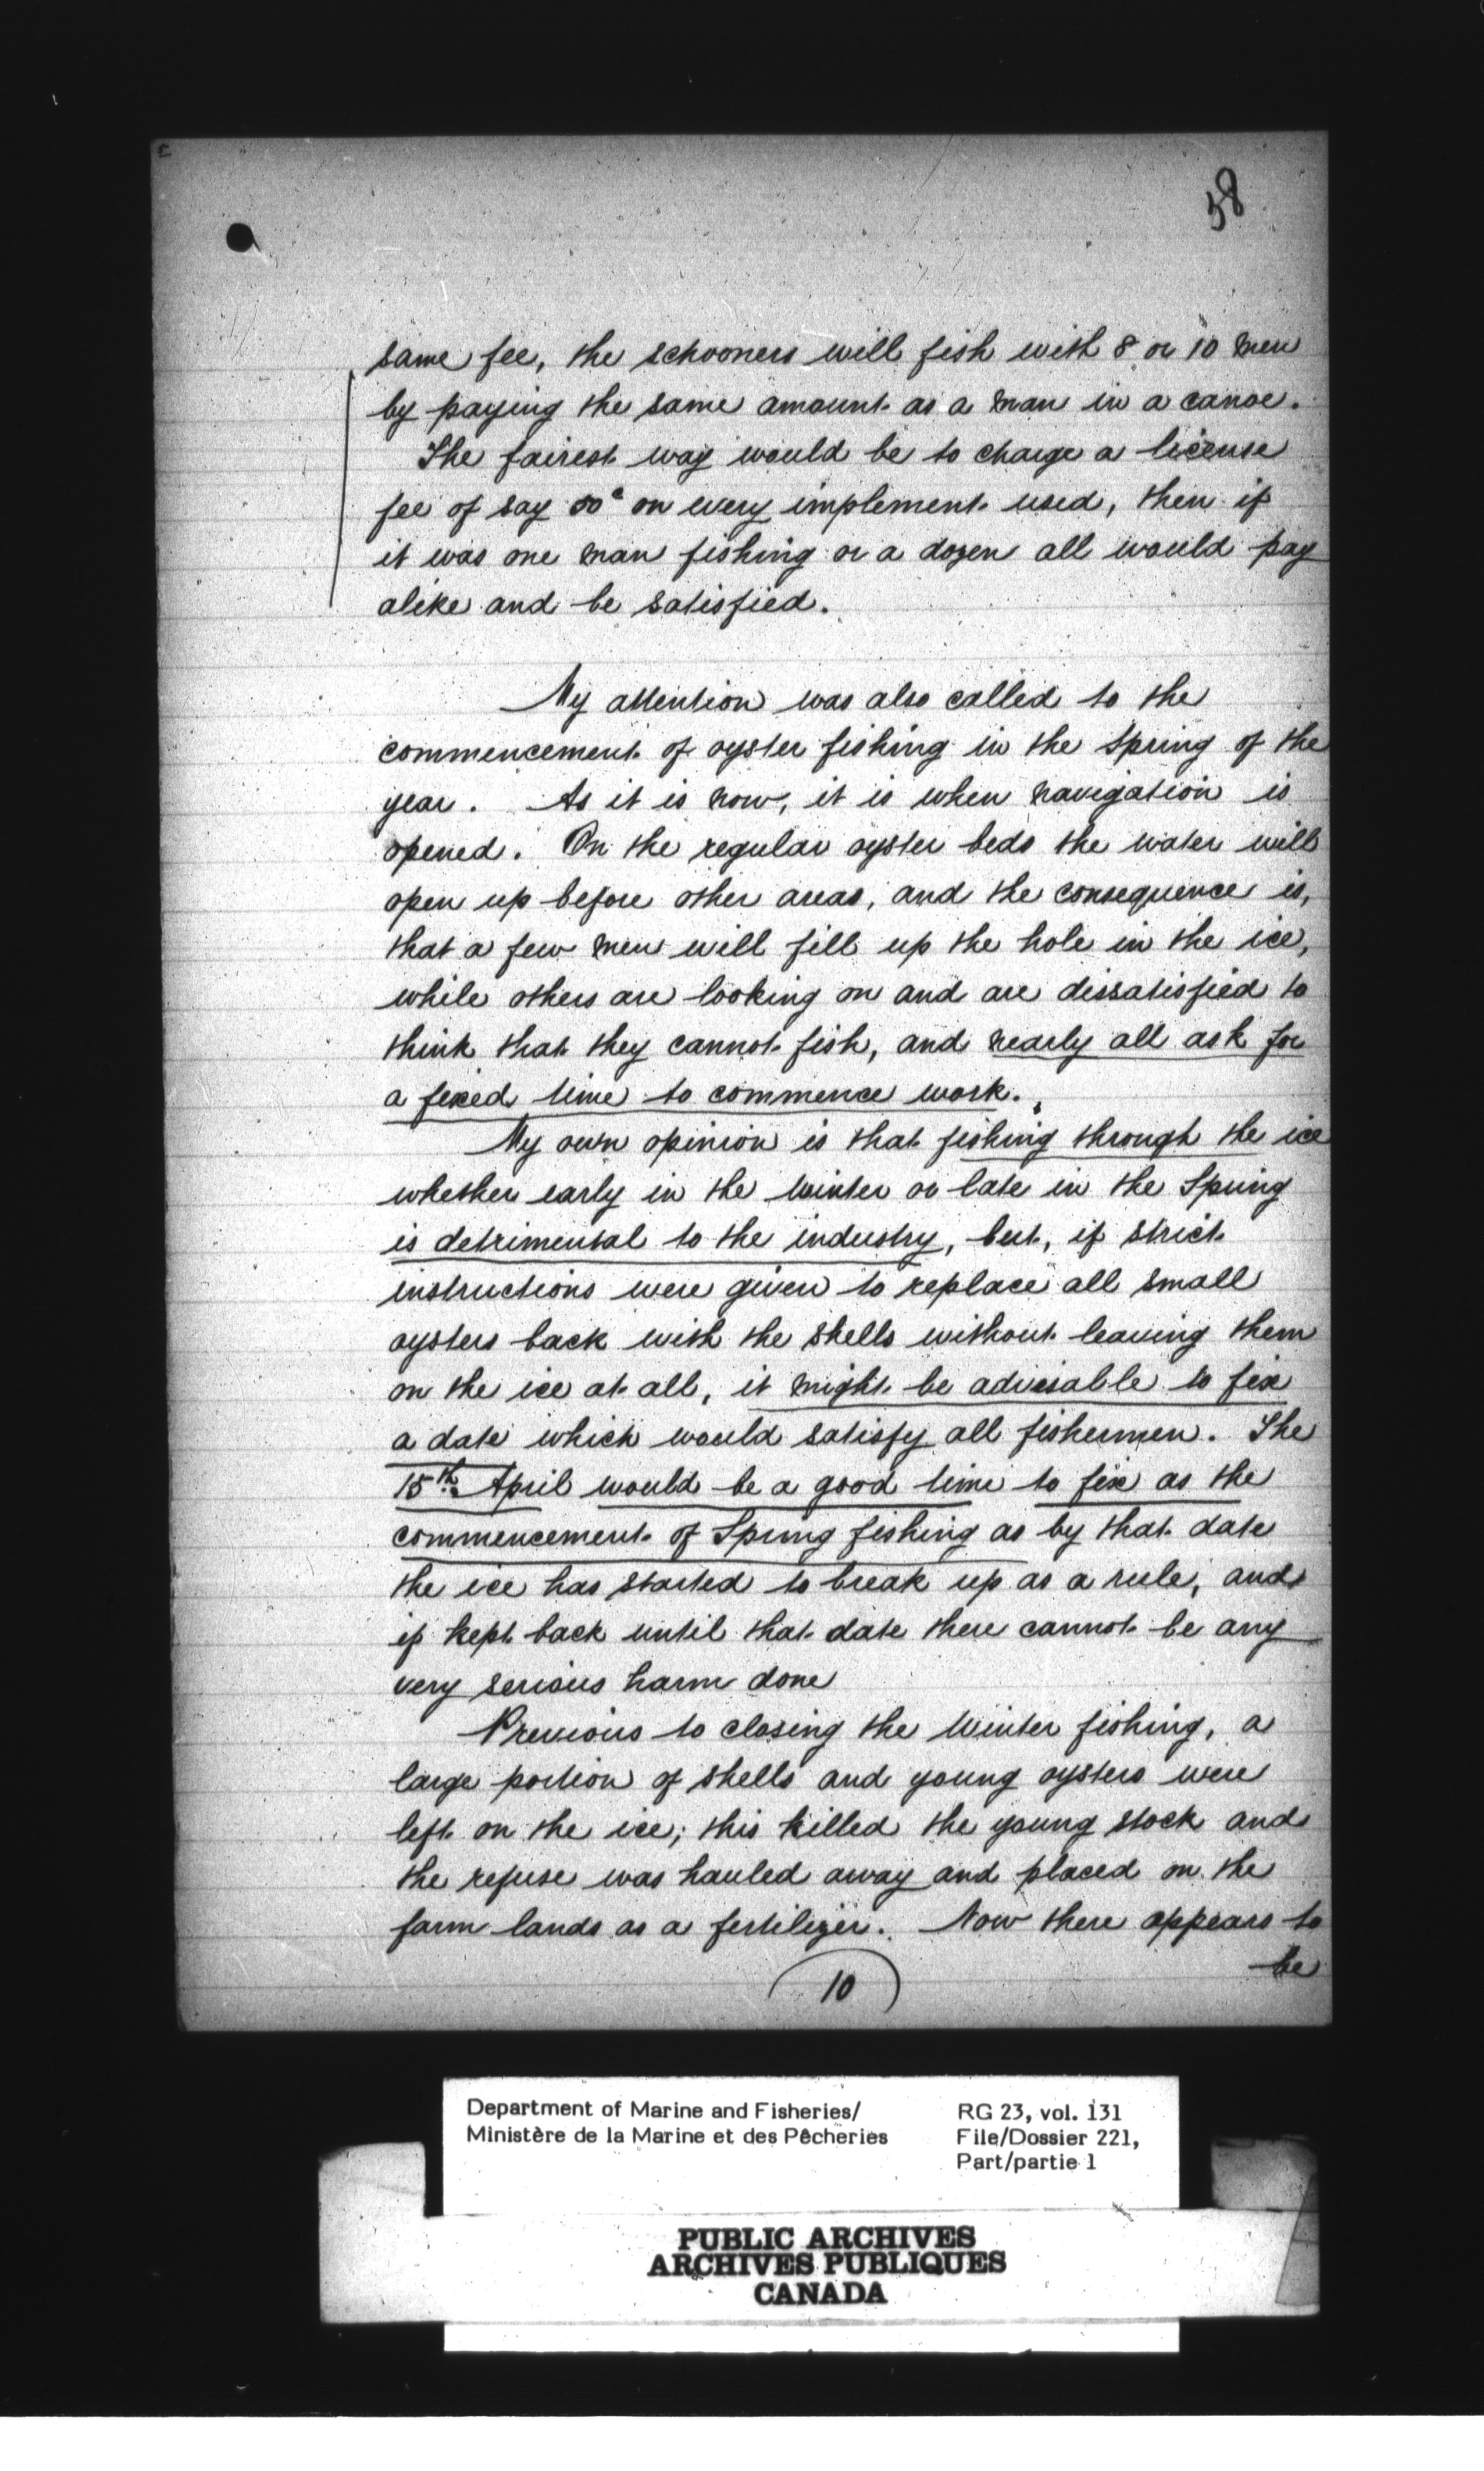 58
same fee, the schooners will fish with 8 or 10 men
by paying the same amount as a man in a canoe.
The fairest way would be to charge a license
fee of say 50c on every implement used, then if
it was one man fishing or a dozen all would pay
alike and be satisfied.
My attention was also called to the
commencement of oyster fishing in the Spring of the
year. As it is now, it is when navigation is
opened. On the regular oyster beds the water will
open up before other areas, and the consequence is,
that a few men will fill up the hole in the ice,
while others are looking on and are dissatisfied to
think that they cannot fish, and nearly all ask for
a fixed time to commence work.
My own opinion is that fishing through the ice
whether early in the Winter or late in the Spring
is detrimental to the industry, but, if strict
instructions were given to replace all small
oysters back with the shells without leaving them
on the ice at all, it might be advisable to fix
a date which would satisfy all fishermen. The
15th April would be a good time to fix as the
commencement of Spring fishing as by that date
the ice has started to break up as a rule, and
if kept back until that date there cannot be any
very serious harm done
Previous to closing the Winter fishing, a
large portion of shells and young oysters were
left on the ice; this killed the young stock and
the refuse was hauled away and placed on the
farm lands as a fertilizer. Now there appears to
be
10
Department of Marine and Fisheries/
Ministère de la Marine et des Pêcheries
RG 23, vol. 131
File/Dossier 221,
Part/partie 1
PUBLIC ARCHIVES
ARCHIVES PUBLIQUES
CANADA